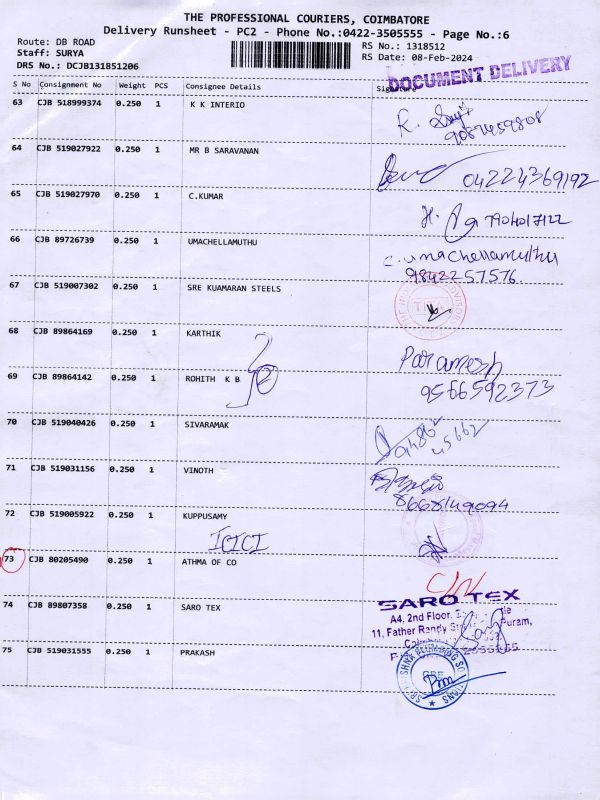 THE PROFESSIONAL COURIERS, COIMBATORE
Delivery Runsheet - PC2 - Phone No.:0422-3505555 - Page No.:6
Route: DB ROAD
RS No.: 1318512
Staff: SURYA
RS Date: 08-Feb-2024
DRS No.: DCJB131851206
DOCUMENT DELIVERY
S No Consignment No Weight PCS Consignee Details Signature
63 CJB 518999374 0.250 1 K K INTERIO
R.
9087459808
64 CJB 519027922 0.250 1 MR B SARAVANAN
04224369192
65 CJB 519027970 0.250 1 C.KUMAR
7904017122
66 CJB 89726739 0.250 1 UMACHELLAMUTHU
C.umachellamuthu
9842257576.
67 CJB 519007302 0.250 1 SRE KUAMARAN STEELS
68 CJB 89864169 0.250 1 KARTHIK
Paramesh
69 CJB 89864142 0.250 1 ROHITH K B
9566592373
70 CJB 519040426 0.250 1 SIVARAMAK
45662
71 CJB 519031156 0.250 1 VINOTH
8668149094
72 CJB 519005922 0.250 1 KUPPUSAMY
ICICI
73 CJB 80205490 0.250 1 ATHMA OF CO
74 CJB 89807358 0.250 1 SARO TEX
SARO TEX
A4, 2nd Floor,
11, Father Randy Puram,
75 CJB 519031555 0.250 1 PRAKASH